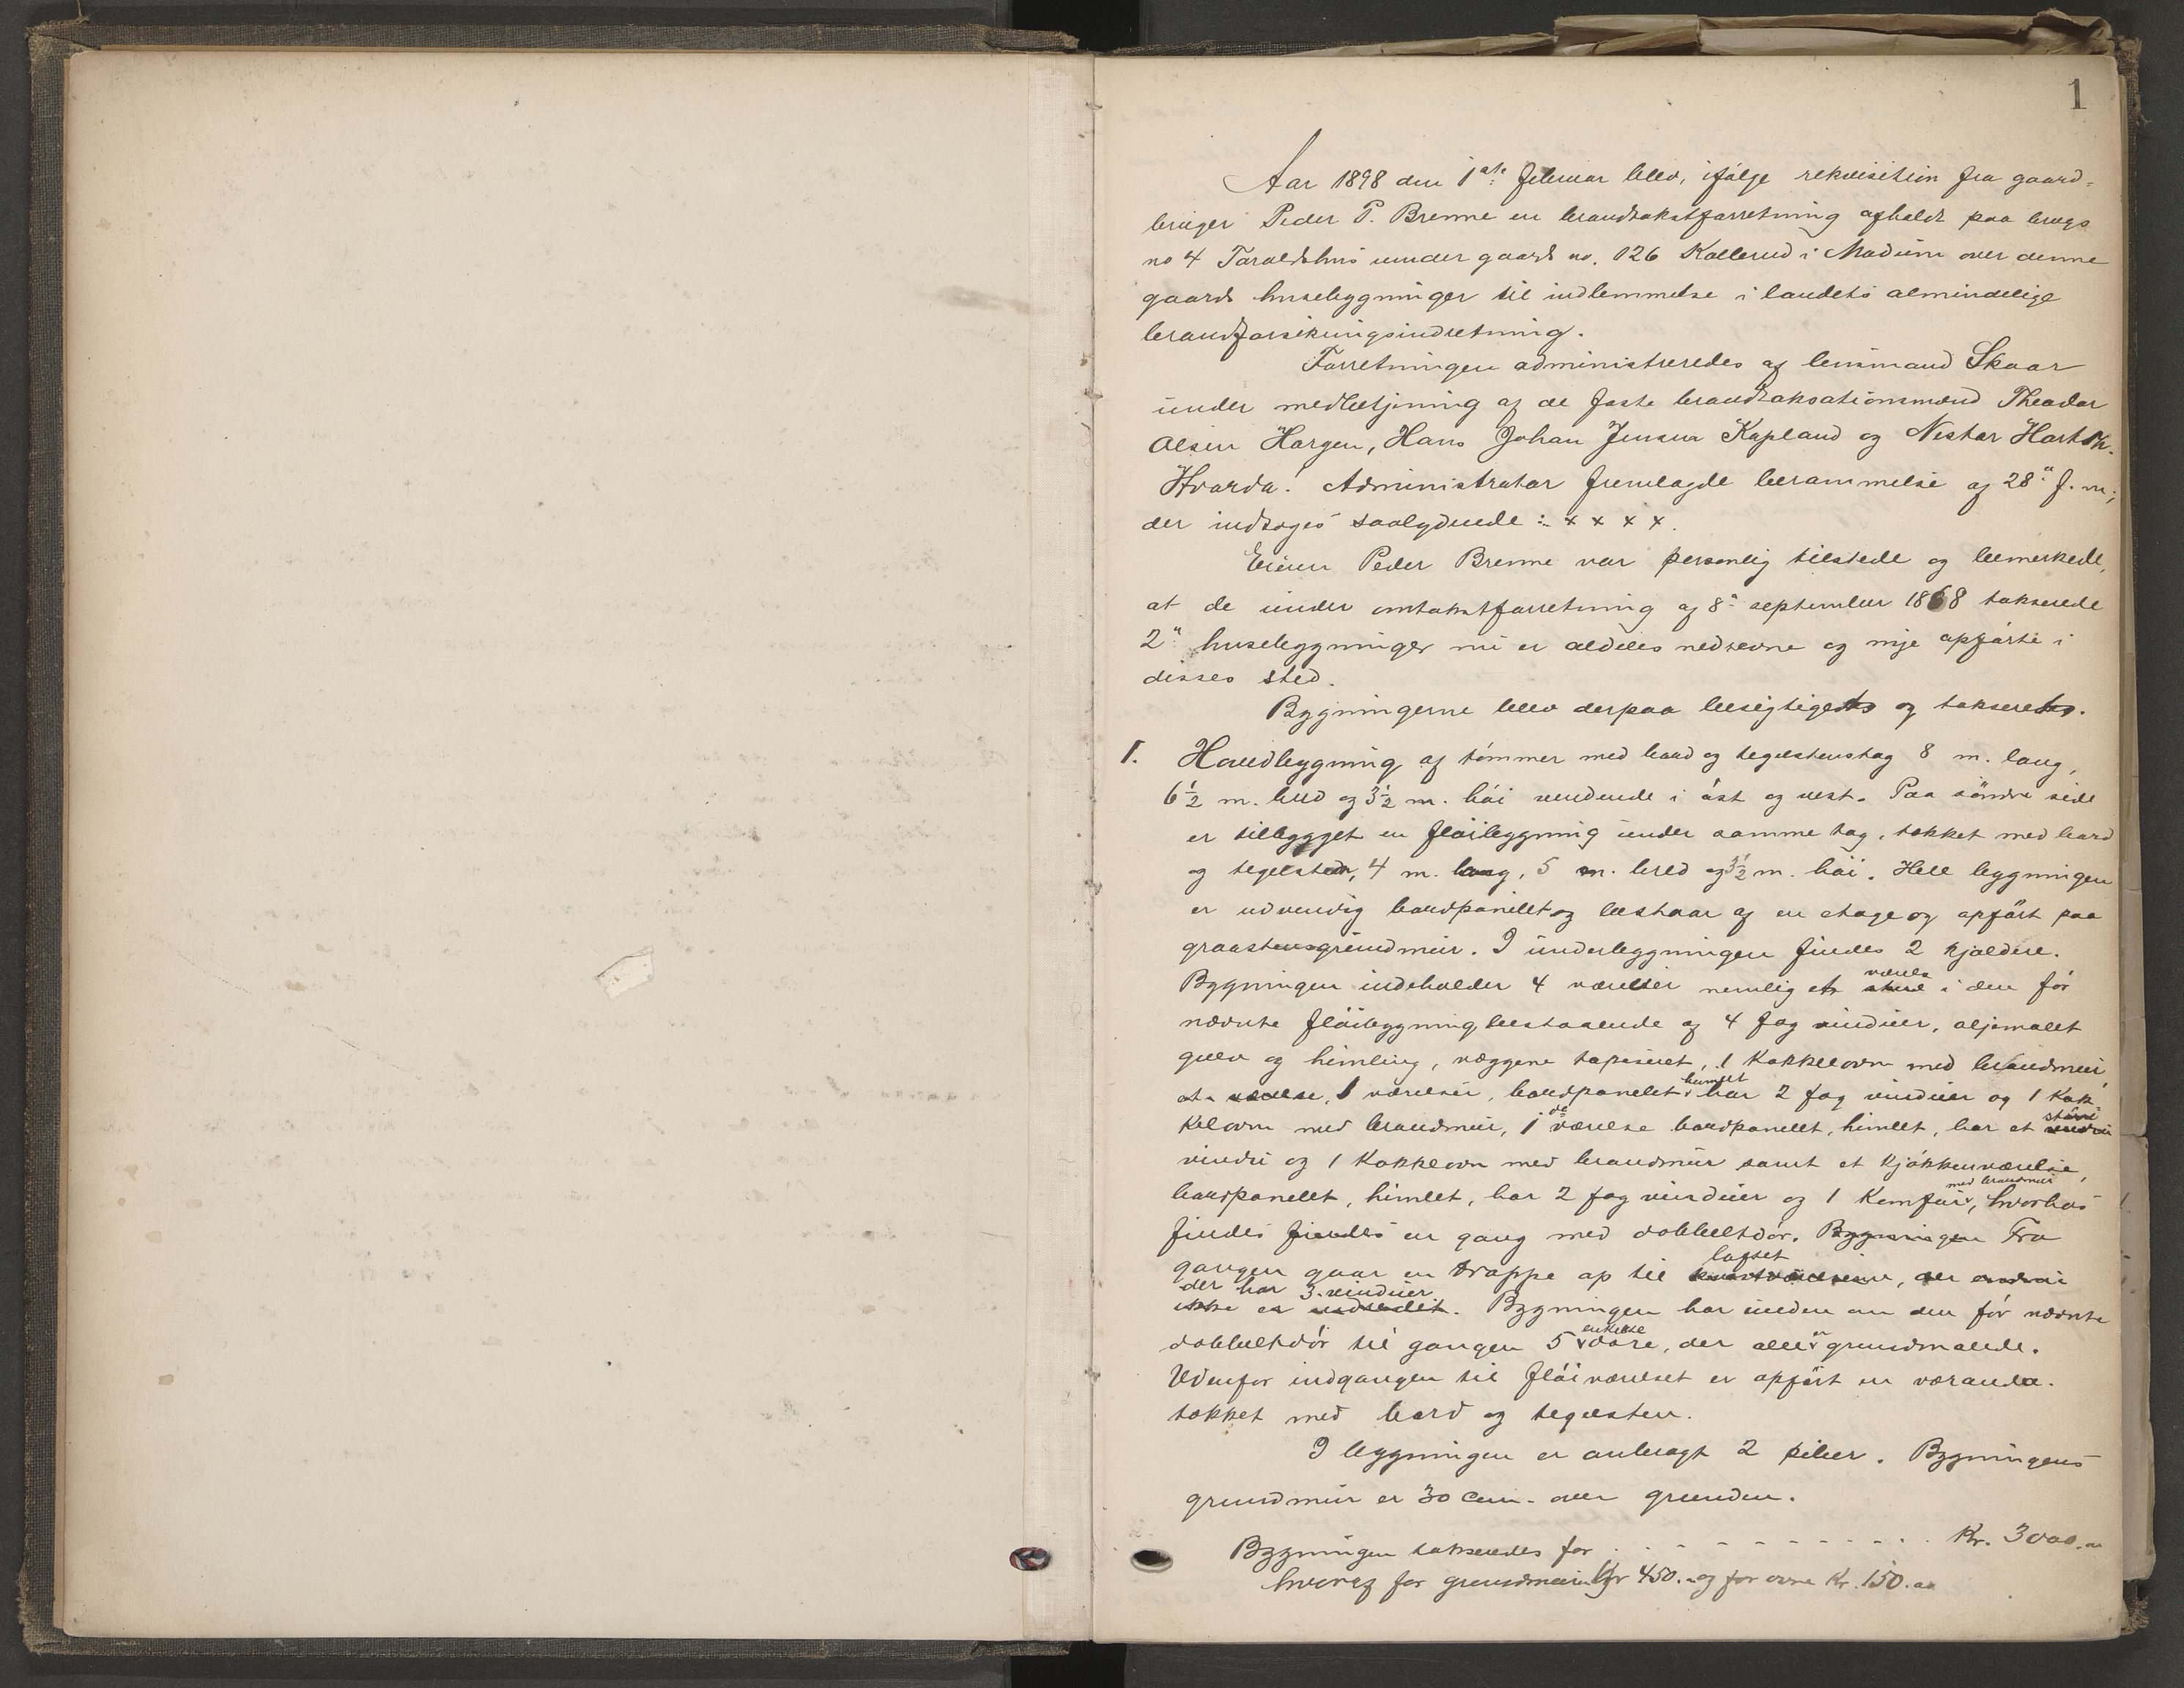 1
Aar 1898 den 1ste februar blev, ifølge rekvisition fra gaard-
bruger Peder P. Brenne en brandtakstforretning afholdt paa brugs
no 4 Taraldshus under gaards no. 126 Kallerud i Modum over denne
gaards husebygninger til indlemmelse i landets almindelige
brandforsikringsindretning.
Forretningen administreredes af lensmand Skaar
under medbetjening af de faste brandtaksationsmænd Theodor
Olsen Horgen, Hans Johan Jensen Kopland og Nestor
Hvarda. Administrator fremlagde berammelse af 28de f. m.,
der indtoges saalydende: x x x x.
Eieren Peder Brenne var personlig tilstede og bemerkede,
at de under omtakstforretning af 8de september 1868 takserede
2de husebygninger nu er aldeles nedrevne og nye opførte i
disses sted.
Bygningerne blev derpaa besigtigede og takserede.
1. Hovedbygning af tømmer med bord og tegelstenstag 8 m. lang,
6½ m. bred og 3½ m. høi vendende i øst og vest. Paa søndre side
er tilbygget en fløibygning under samme tag, tækket med bord
og tegelsten, 4 m. lang, 5 m. bred og 3½ m. høi. Hele bygningen
er udvendig bordpanelet og bestaar af en etage og opført paa
graastensgrundmur. I underbygningen findes 2 kjældere.
værelse
Bygningen indeholder 4 værelser nemlig et i den før
nævnte fløibygning bestaaende af 4 fag vinduer, oljemalet
gulv og himling, væggene tapeseret, 1 kakkelovn med brandmur,
himlet
et værelse, 1 værelser, bordpanelet har 2 fag vinduer og 1 kak
de større
kelovn med brandmur, 1 værelse bordpanelet, himlet, har et
vindu og 1 kakkelovn med brandmur samt et kjøkkenværelse,
med brandmur
bordpanelet, himlet, har 2 fag vinduer og 1 komfur, hvorhos
findes findes en gang med dobbeltdør. Bygningen Fra
loftet
gangen gaar en trappe op til kvistværelserne, der endnu
der har 3 vinduer
ikke er indredet. Bygningen har inden om den før nævnte
enkelte er
dobbeltdør til gangen 5 døre, der alle grundmalede.
Udenfor indgangen til fløiværelset er opført en veranda
tækket med bord og tegelsten.
I bygningen er anbragt 2 piber. Bygningens
grundmur er 30 cm. over grunden.
Bygningen takseredes for . . . . . . . . . . . . Kr. 3000.00
hvoraf for grundmuren Kr 450.- og for ovne Kr. 150.00